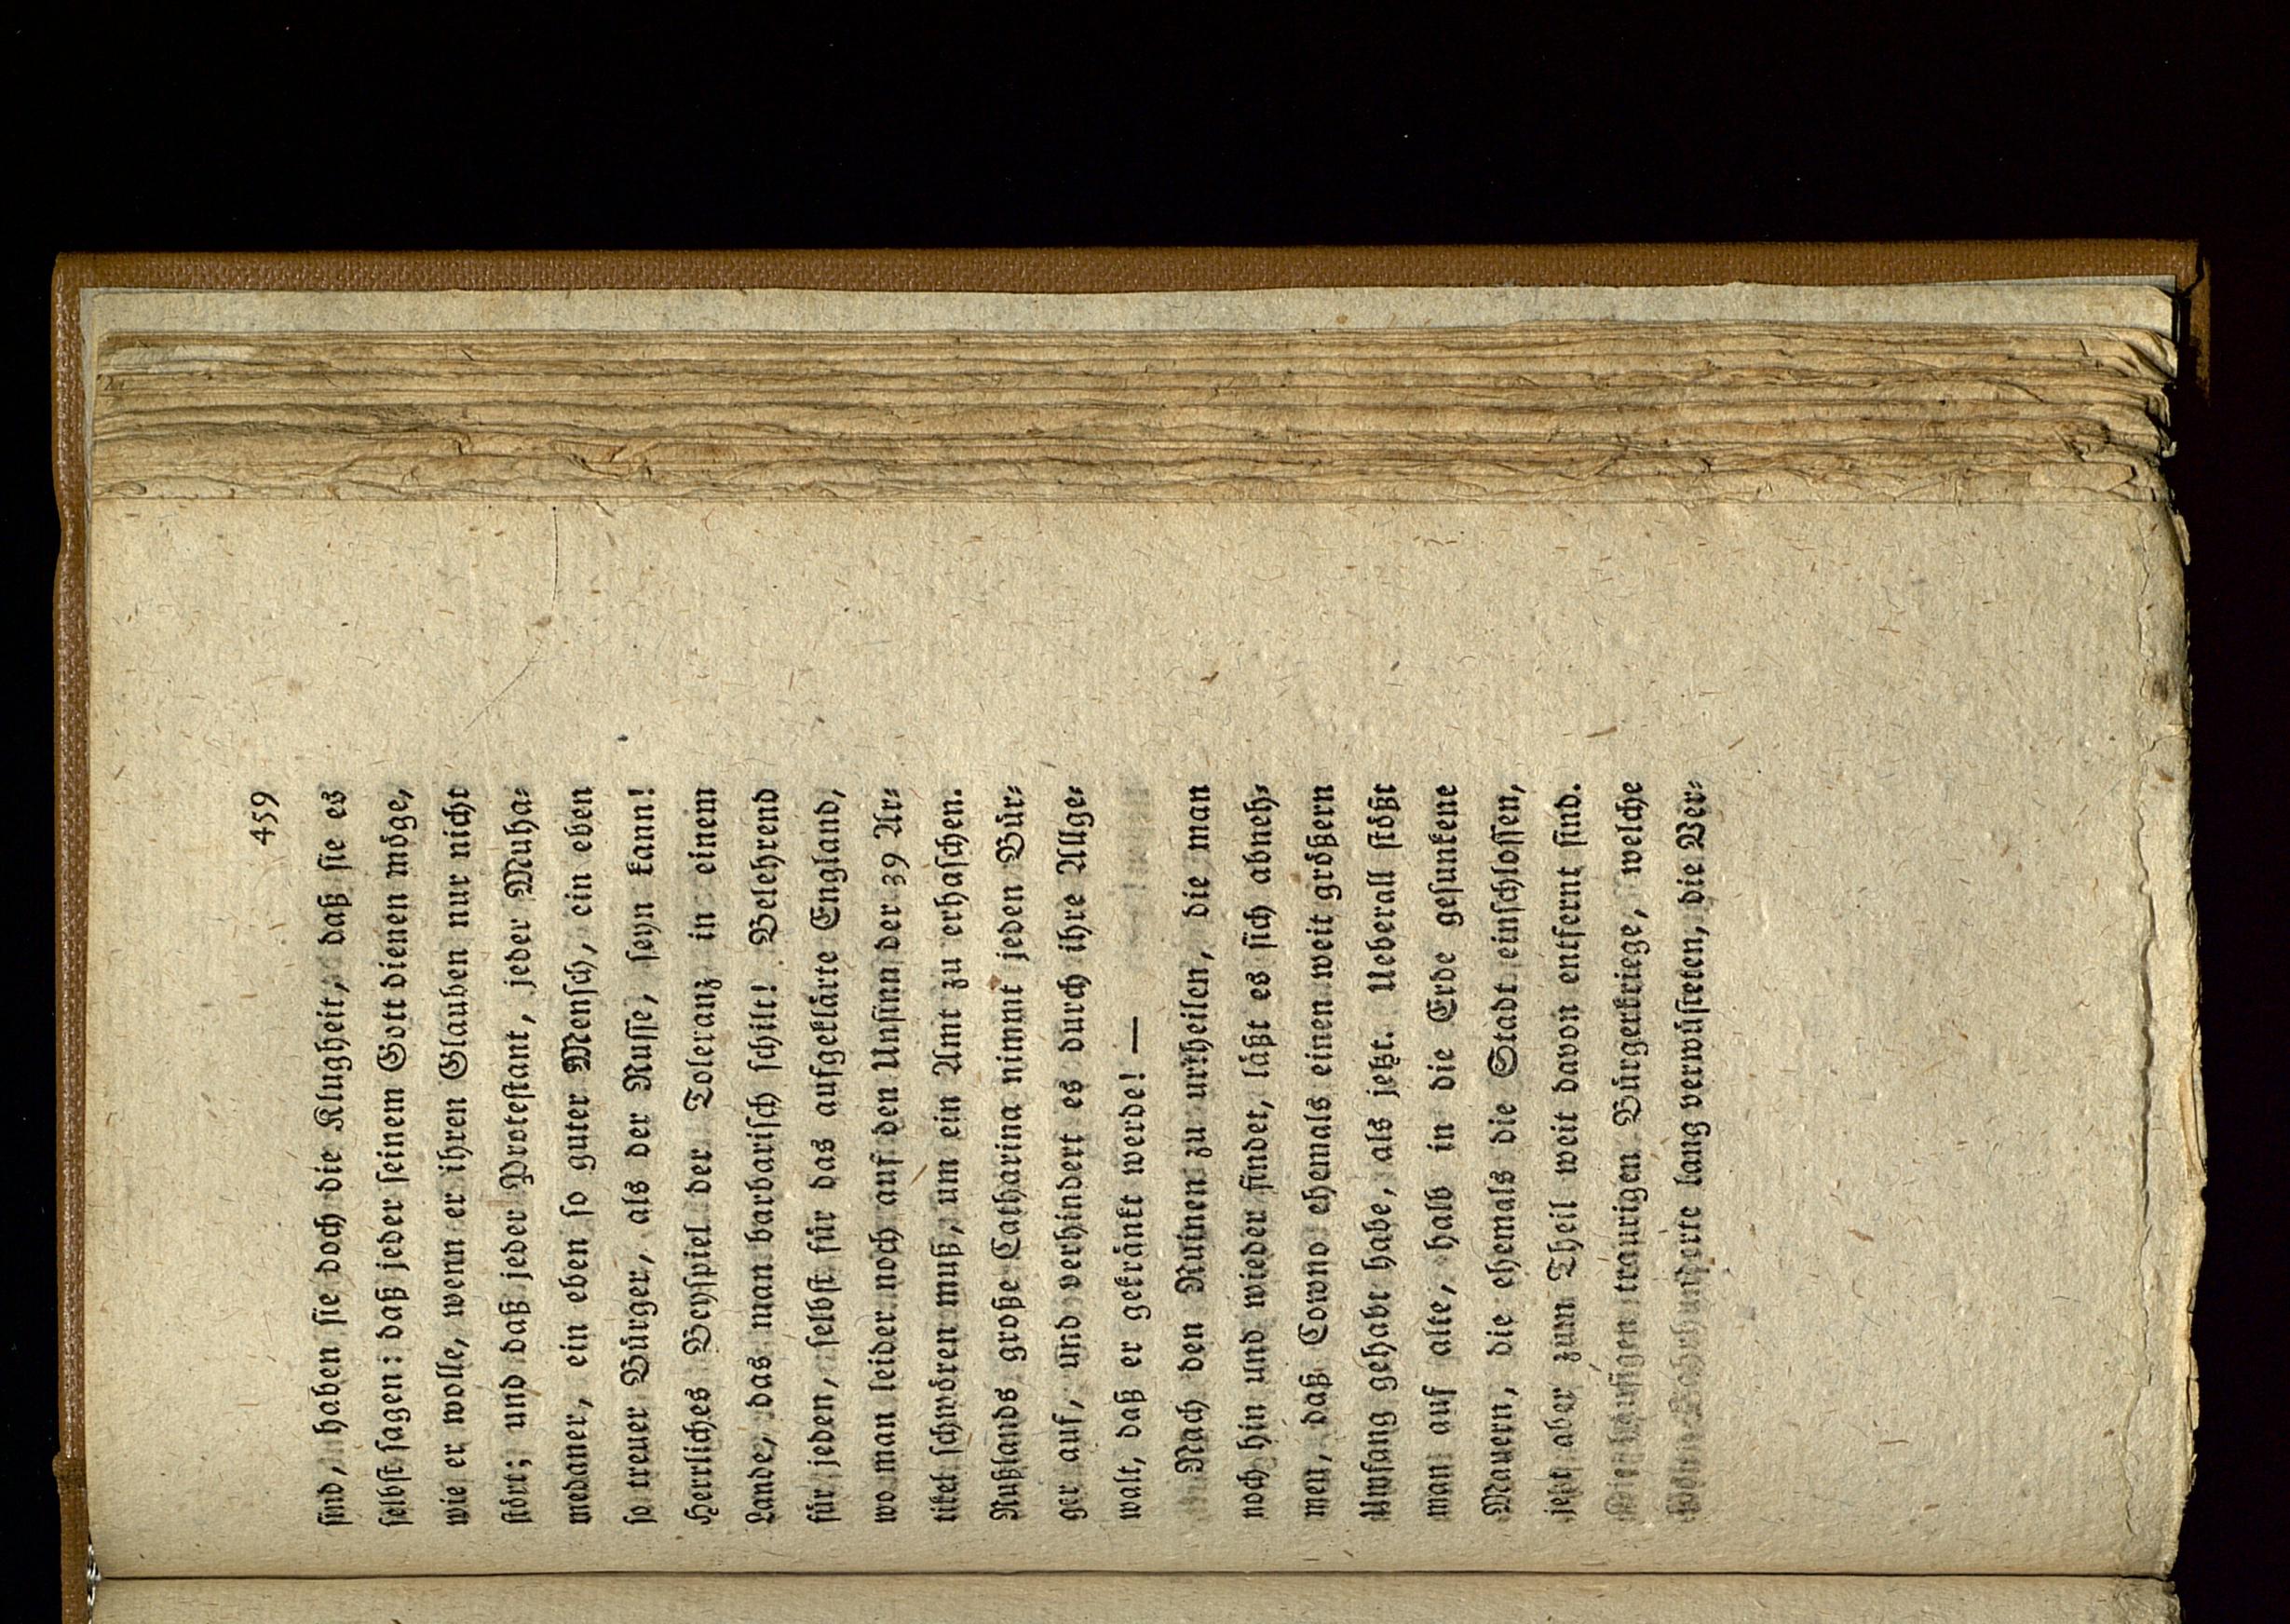 459
sind, haben sie doch die Klugheit, daß sie es
selbst sagen: daß jeder seinem Gott dienen möge,
wie er wolle, wenn er ihren Glauben nur nicht
stört; und daß jeder Protestant, jeder Muha-
medaner, ein eben so guter Mensch, ein eben
so treuer Bürger, als der Russe, seyn kann!
Herrliches Beyspiel der Toleranz in einem
Lande, das man barbarisch schilt! Belehrend
für jeden, selbst für das aufgeklärte England,
wo man leider noch auf den Unsinn der 39 Ar-
tikel schwören muß, um ein Amt zu erhaschen.
Rußlands große Catharina nimmt jeden Bür-
ger auf, und verhindert es durch ihre Allge-
walt, daß er gekränkt werde! —
Nach den Ruinen zu urtheilen, die man
noch hin und wieder findet, läßt es sich abneh-
men, daß Cowno ehemals einen weit größern
Umfang gehabt habe, als jetzt. Ueberall stößt
man auf alte, halb in die Erde gesunkene
Mauern, die ehemals die Stadt einschlossen,
jetzt aber zum Theil weit davon entfernt sind.
Die häufigen traurigen Bürgerkriege, welche
Jahrhunderte lang verwüsteten, die Ver-